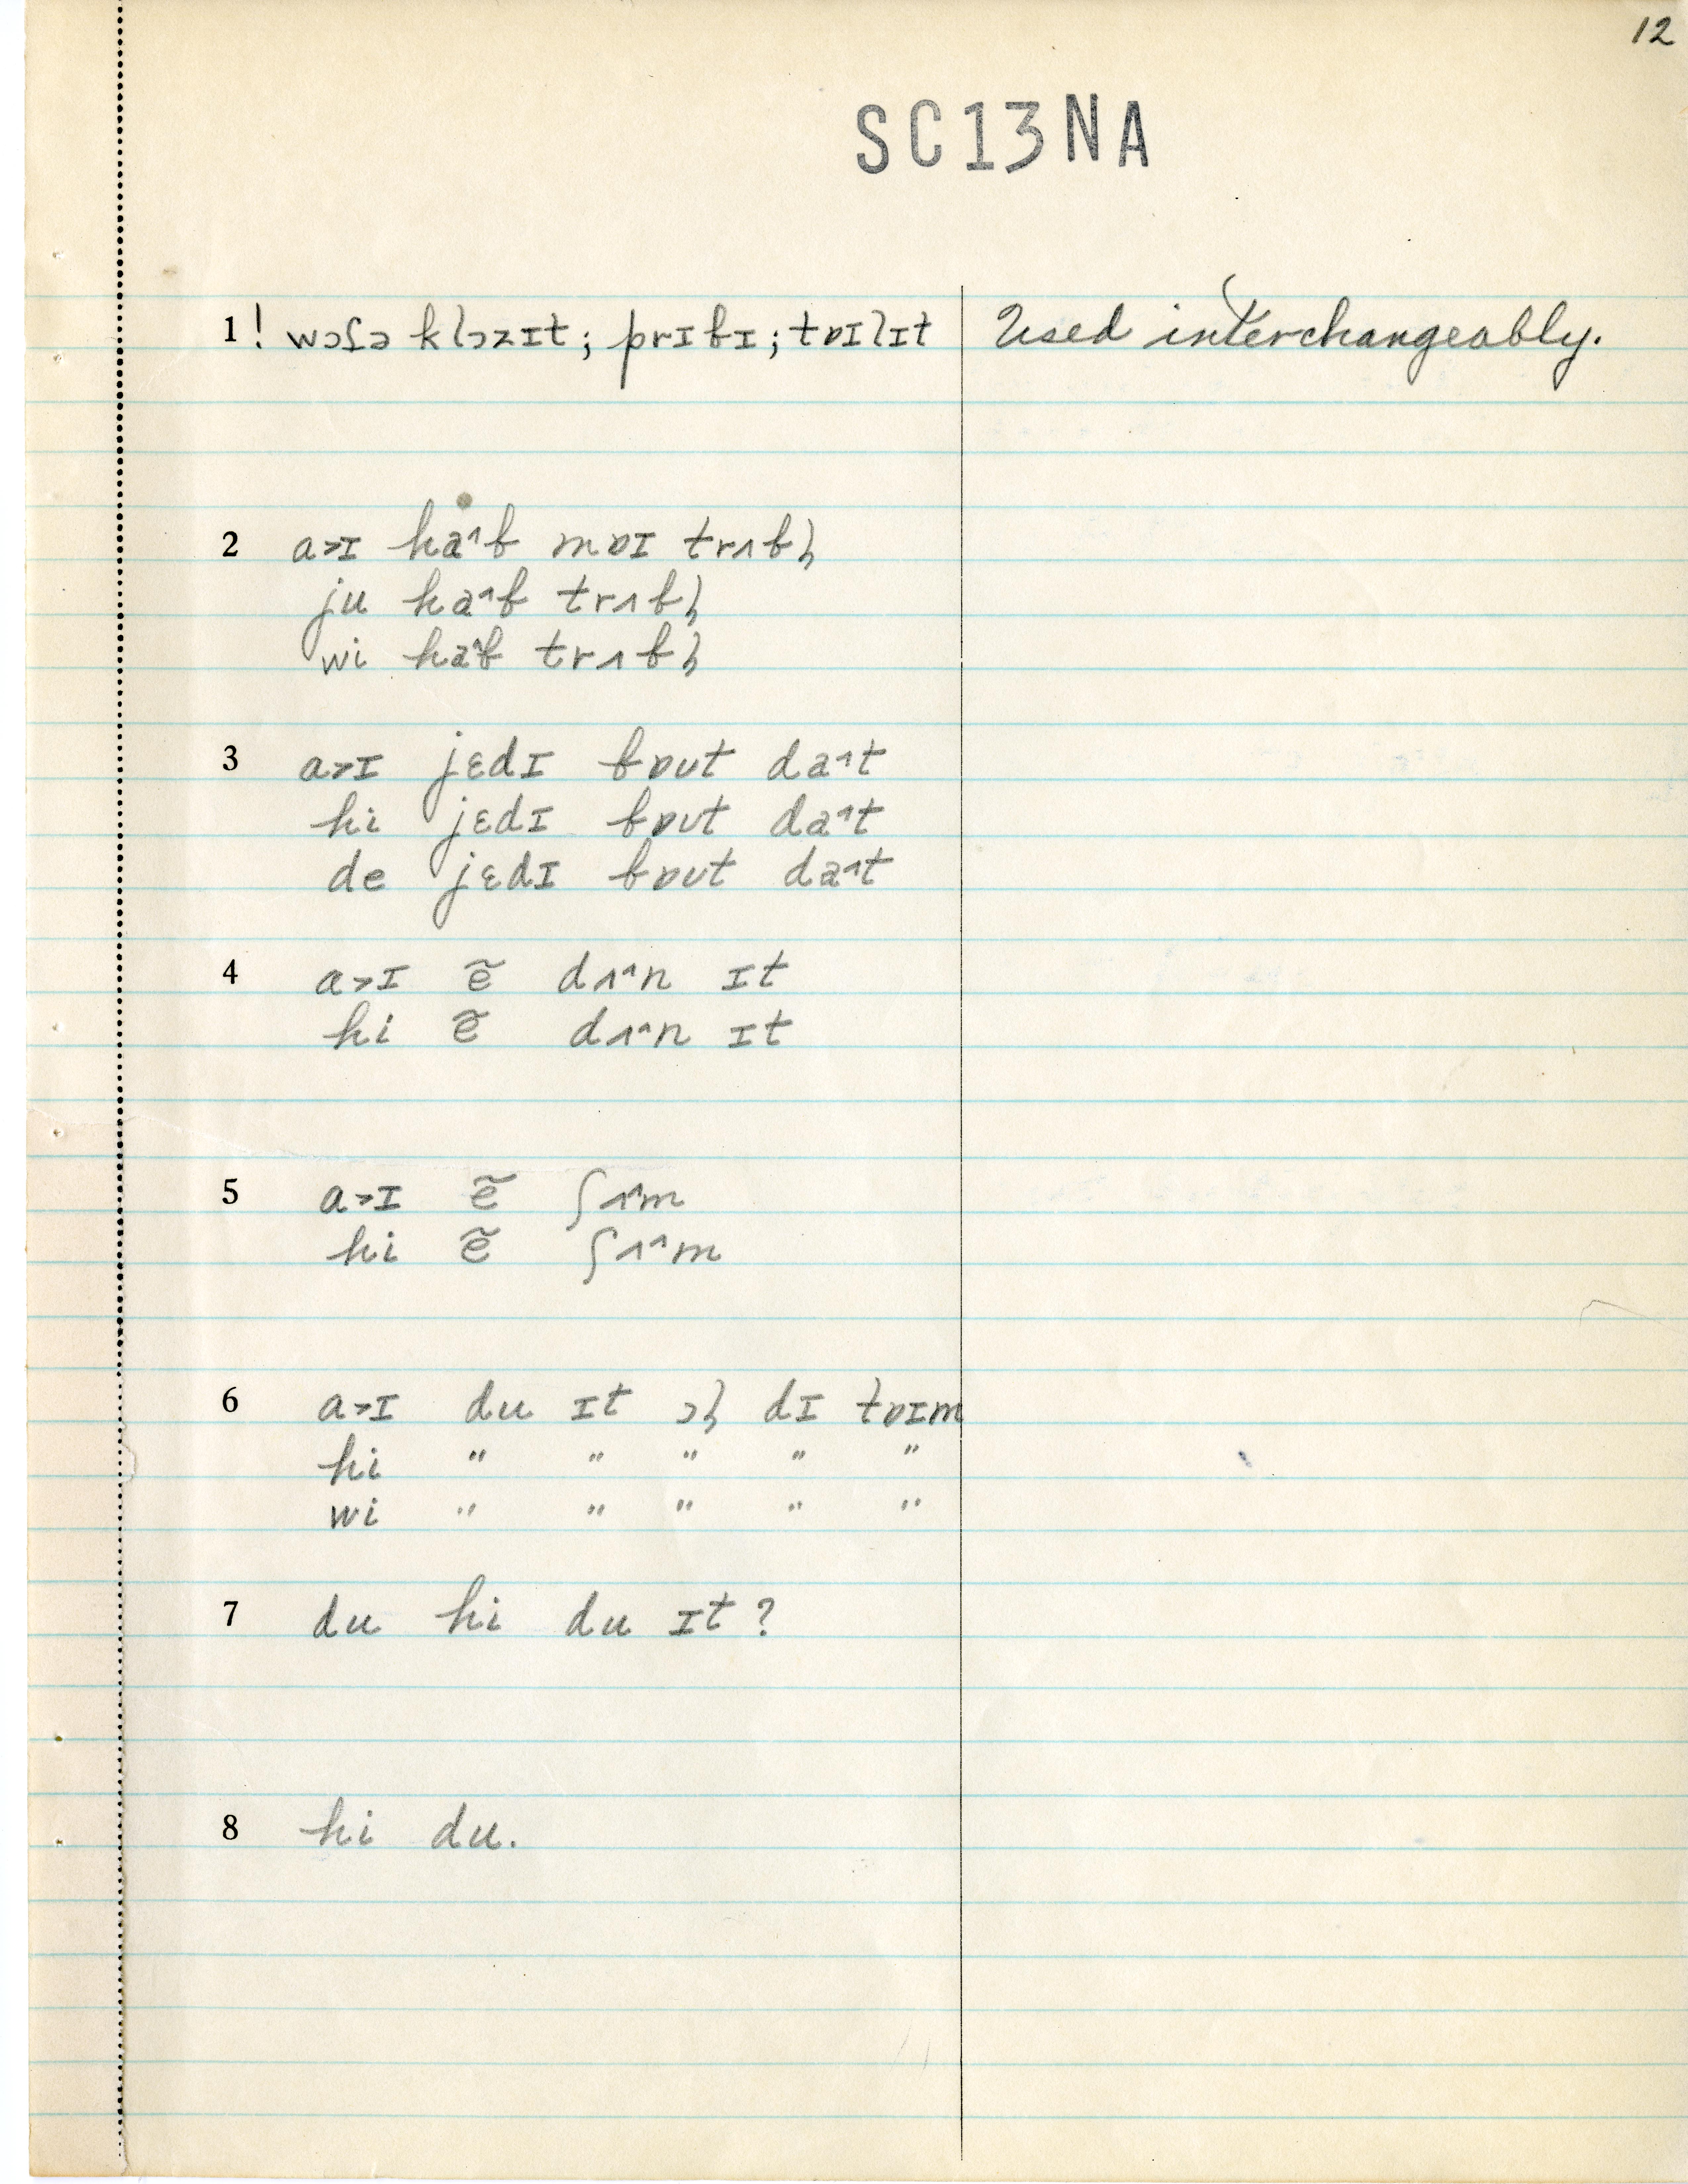 12
SC13NA
1! wɔʃə klɔzɪt; prɪbɪ; tɒɪlɪt Used interchangeably.
2 a>ɪ ha^b mɒɪ trʌbl̩
ju ha^b trʌbl̩
wi ha^b trʌbl̩
3 a>ɪ jɛdɪ bɒut da^t
hi jɛdɪ bɒut da^t
de jɛdɪ bɒut da^t
4 a>ɪ ẽ dʌ^n ɪt
hi ẽ dʌ^n ɪt
5 a>ɪ ẽ ʃʌ^m
hi ẽ ʃʌ^m
6 a>ɪ du ɪt ɔl̩ dɪ tɒɪm
hi " " " " "
wi " " " " "
7 du hi du ɪt?
8 hi du.